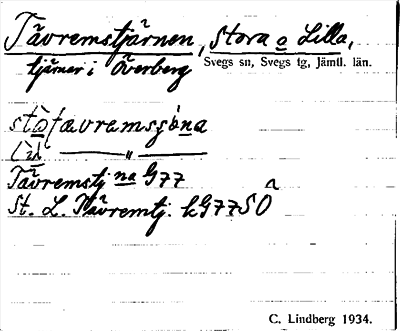 Tävremstjärnen, Stora o Lilla,
tjärnar i Överberg Svegs sn, Svegs tg, Jämtl. län.
tævremsȷöna
lìl — " —
Tävremstj na G77
St. L. Tävremtj. k G77 SÖ
C. Lindberg 1934.